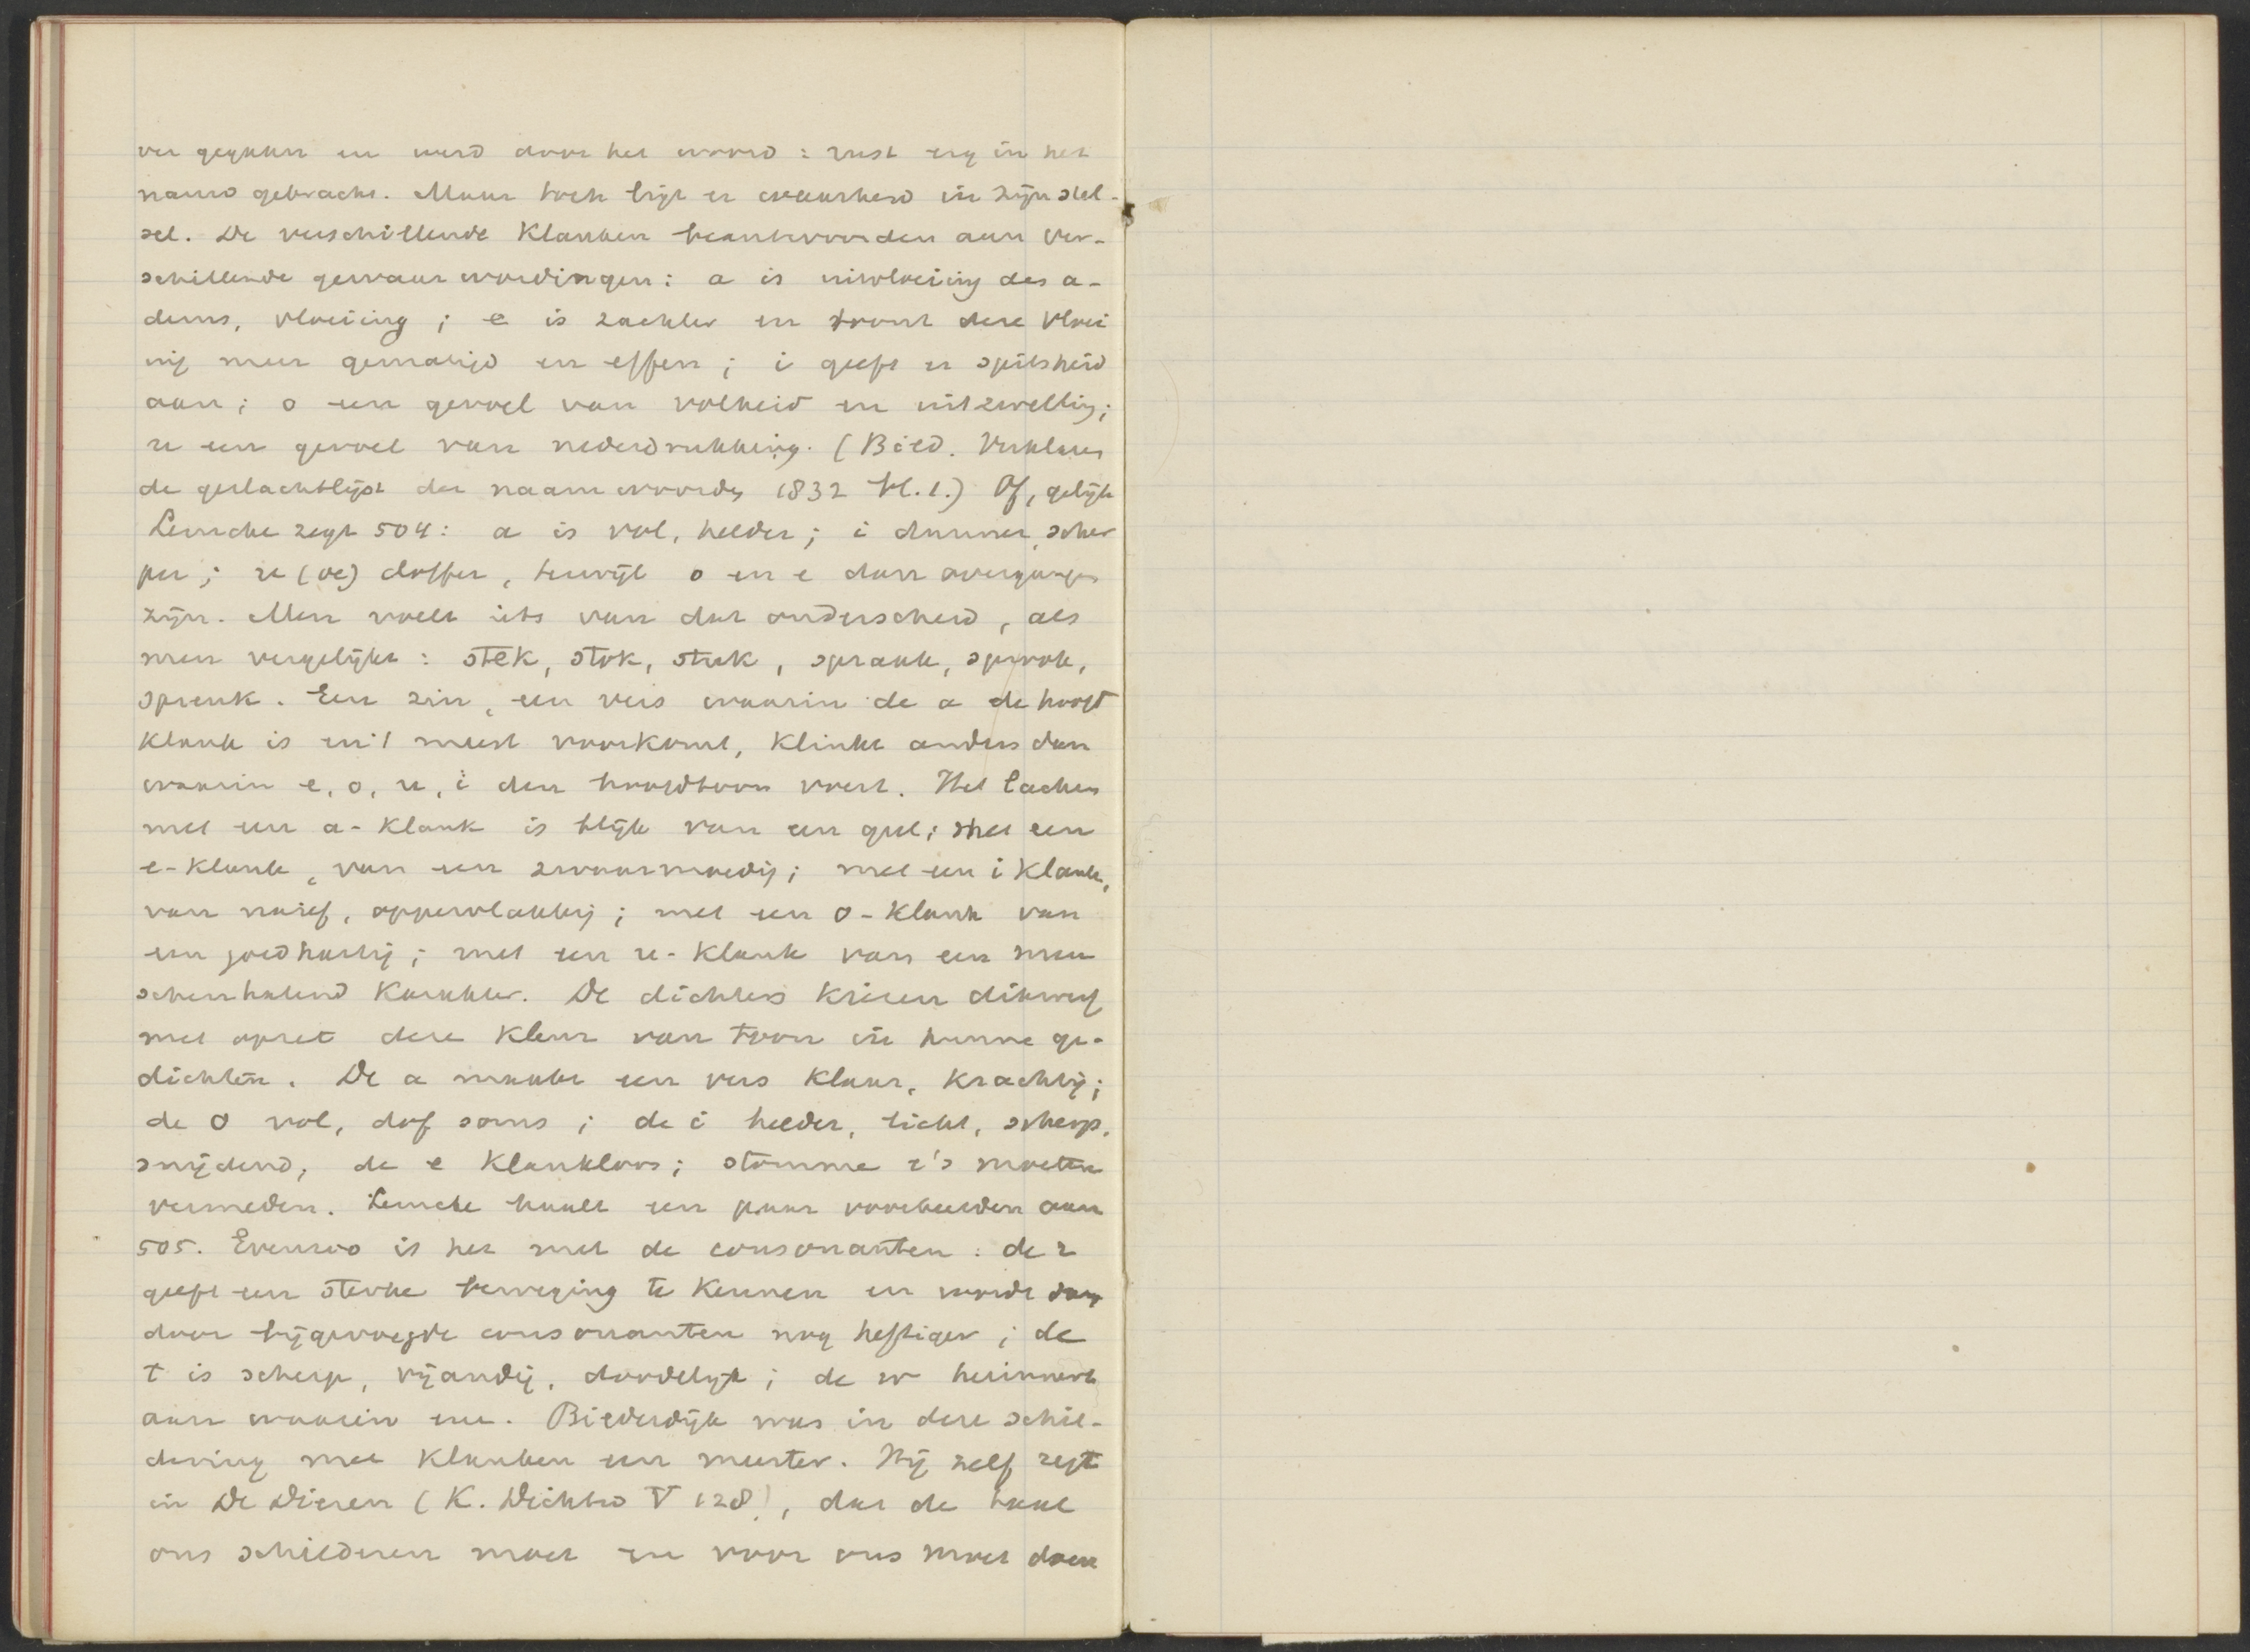 ver gegaan en werd door het woord: rust erg in het
nauw gebracht. Maar toch ligt er waarheid in zijn stel-
sel. De verschillende klanken beantwoorden aan ver-
schillende gewaarwordingen: a is uitvloeiing des a-
dems, vloeiing; e is zachter en toont deze vloei
ing meer gematigd en effen; i geeft er spitsheid
aan; o een gevoel van volheid en uitzwelling;
u een gevoel van nederdrukking. (Bild. Verklaar
de geslachtlijst der naamwoorden 1832 bl. 1.) Of, gelijk
Lemcke zegt 504: a is vol, helder; i dunner, scher
per; u (oe) doffer, terwijl o en e dan overgangen
zijn. Men voelt iets van dat onderscheid, als
men vergelijkt: stek, stok, stuk, sprank, spronk,
sprenk. Een zin, een vers waarin de a de hoofd
klank is en 't meest voorkomt, klinkt anders dan
waarin e, o, u, i den hoofdtoon voert. Het lachen
met een a-klank is blijk van een gul; met een
e-klank, van een zwaarmoedig; met een i klank,
van naief, oppervlakkig; met een o-klank van
een goedhartig; met een u-klank van een men
schenhatend karakter. De dichters kiezen dikwerf
met opzet deze kleur van toon in hunne ge-
dichten. De a maakt een vers klaar, krachtig;
de o vol, dof soms; de i helder, licht, scherp,
snijdend; de e klankloos; stomme e's moeten
vermeden. Lemcke haalt een paar voorbeelden aan
505. Evenzoo is het met de consonanten: de r
geeft een sterke beweging te kennen en wordt
door bijgevoegde consonanten nog heftiger; de
t is scherp, vijandig, doodelijk; de w herinnert
aan waaien enz. Bilderdijk was in deze schil-
dering met klanken een meester. Hij zelf zegt
in De Dieren (K. Dichtw V 128), dat de taal
ons schilderen moet en voor ons moet doen